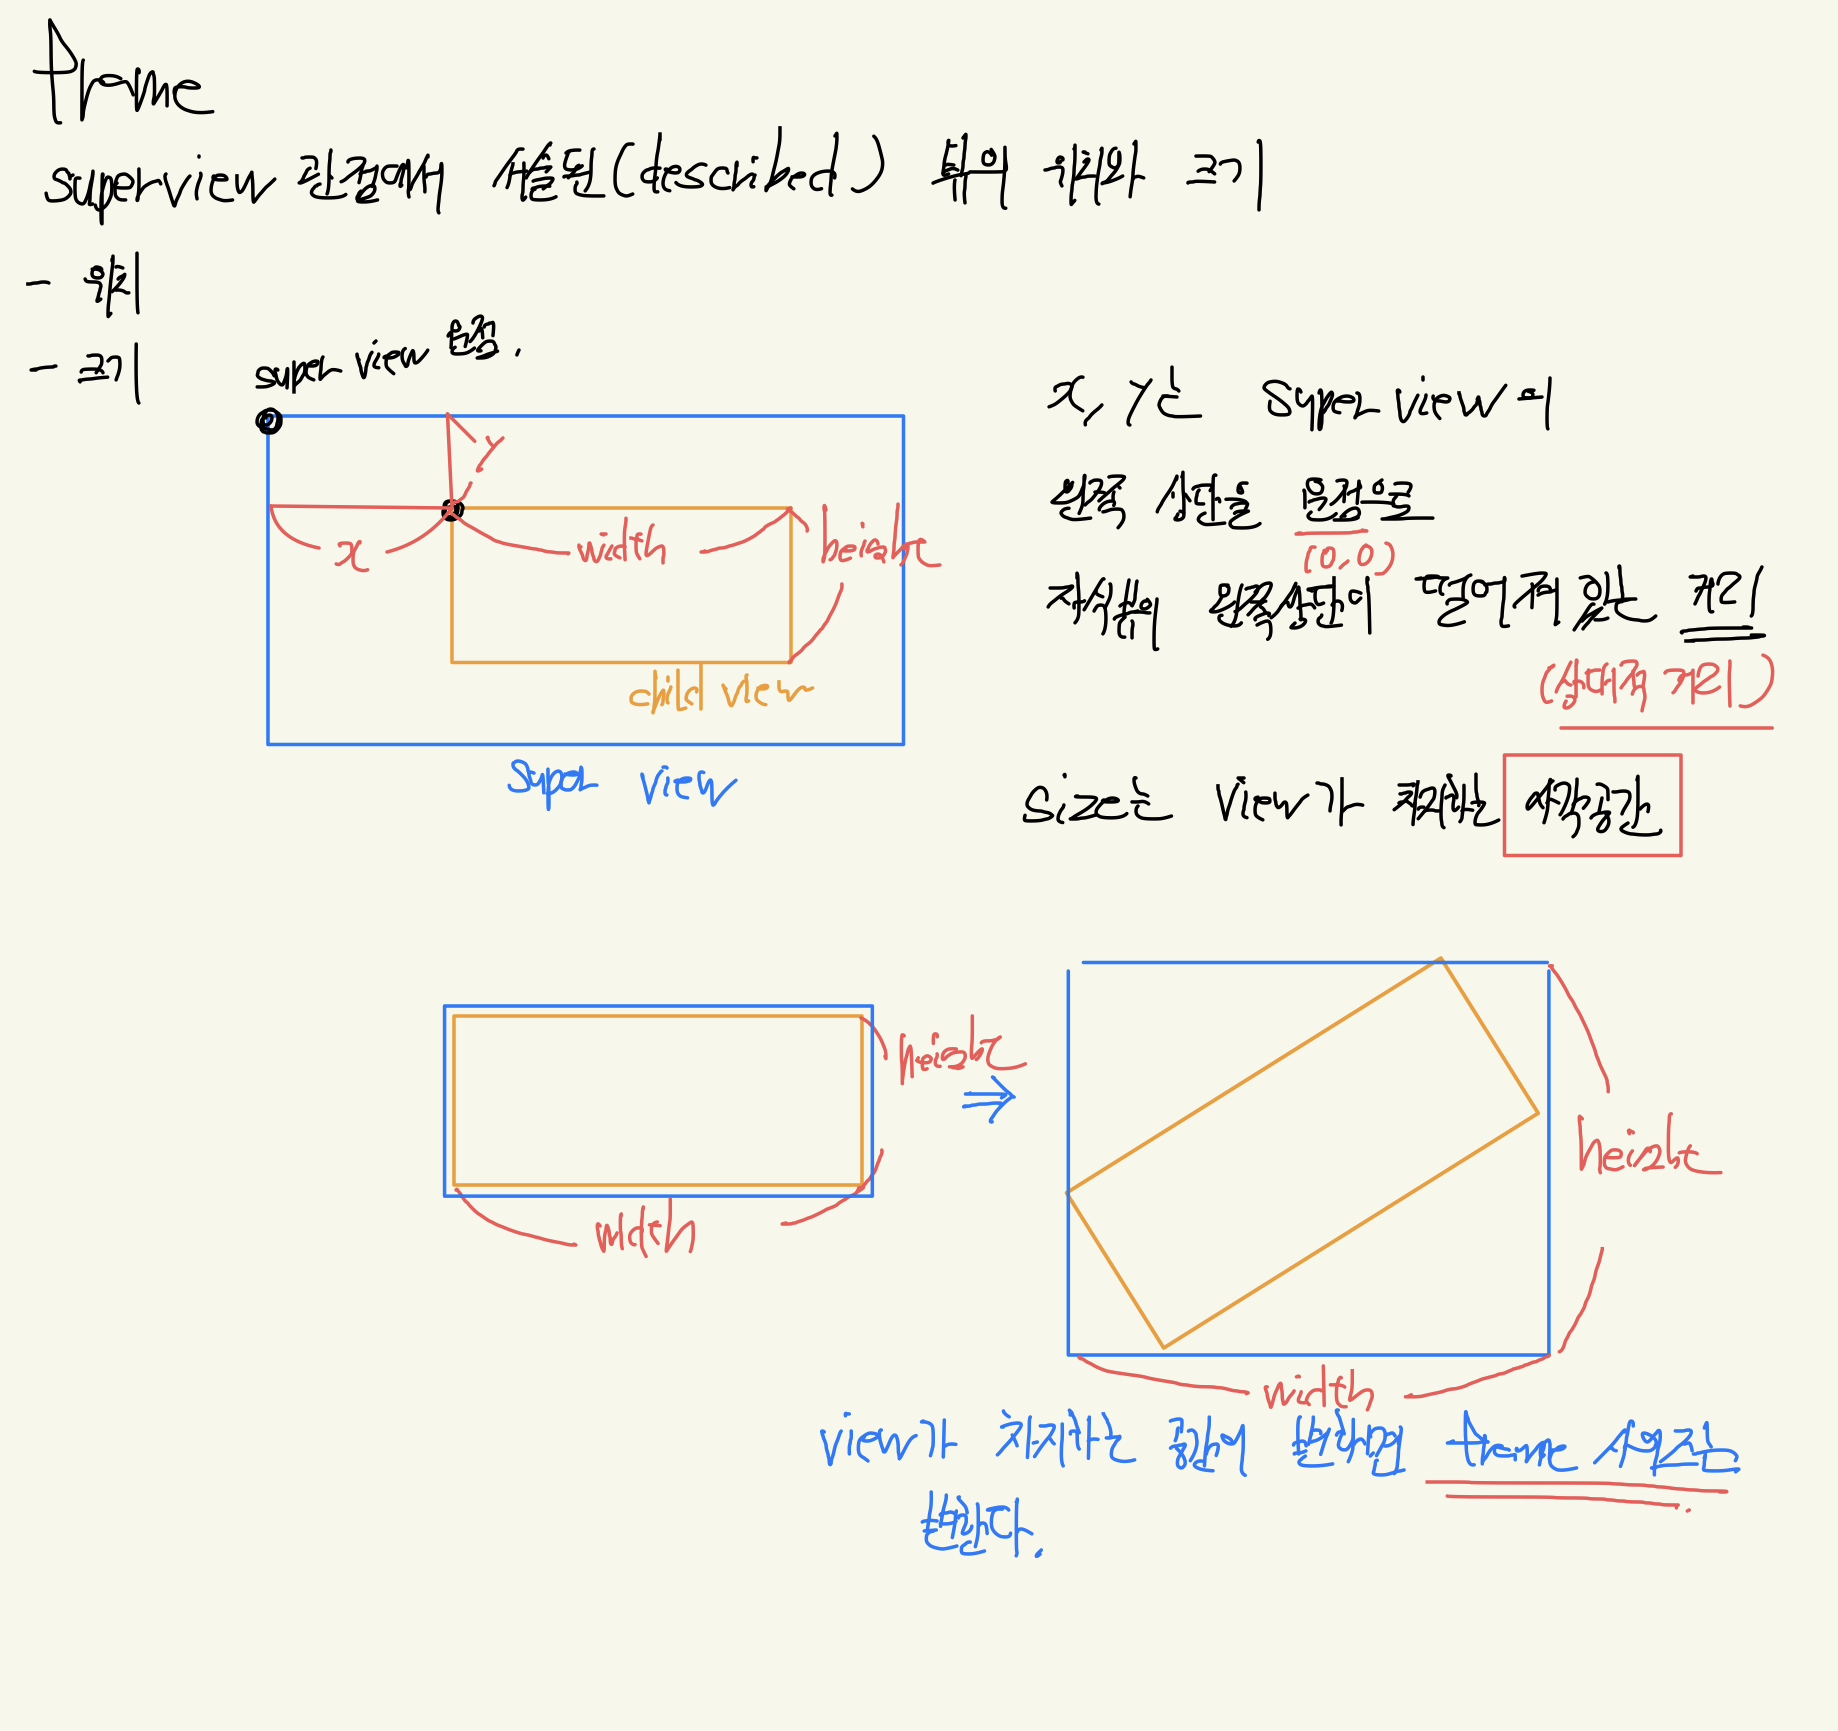 frame
superview 관점에서 서술된(described) 뷰의 위치와 크기
- 위치
- 크기
super view 원점.
y
x
width
height
child view
super view
x, y는 Super view의
왼쪽 상단을 원점으로
(0,0)
자식뷰의 왼쪽상단이 떨어져 있는 거리
(상대적 거리)
Size는 View가 차지하는 사각공간
height
width
⇒
height
width
view가 차지하는 공간이 변하면 frame 사이즈는
변한다.